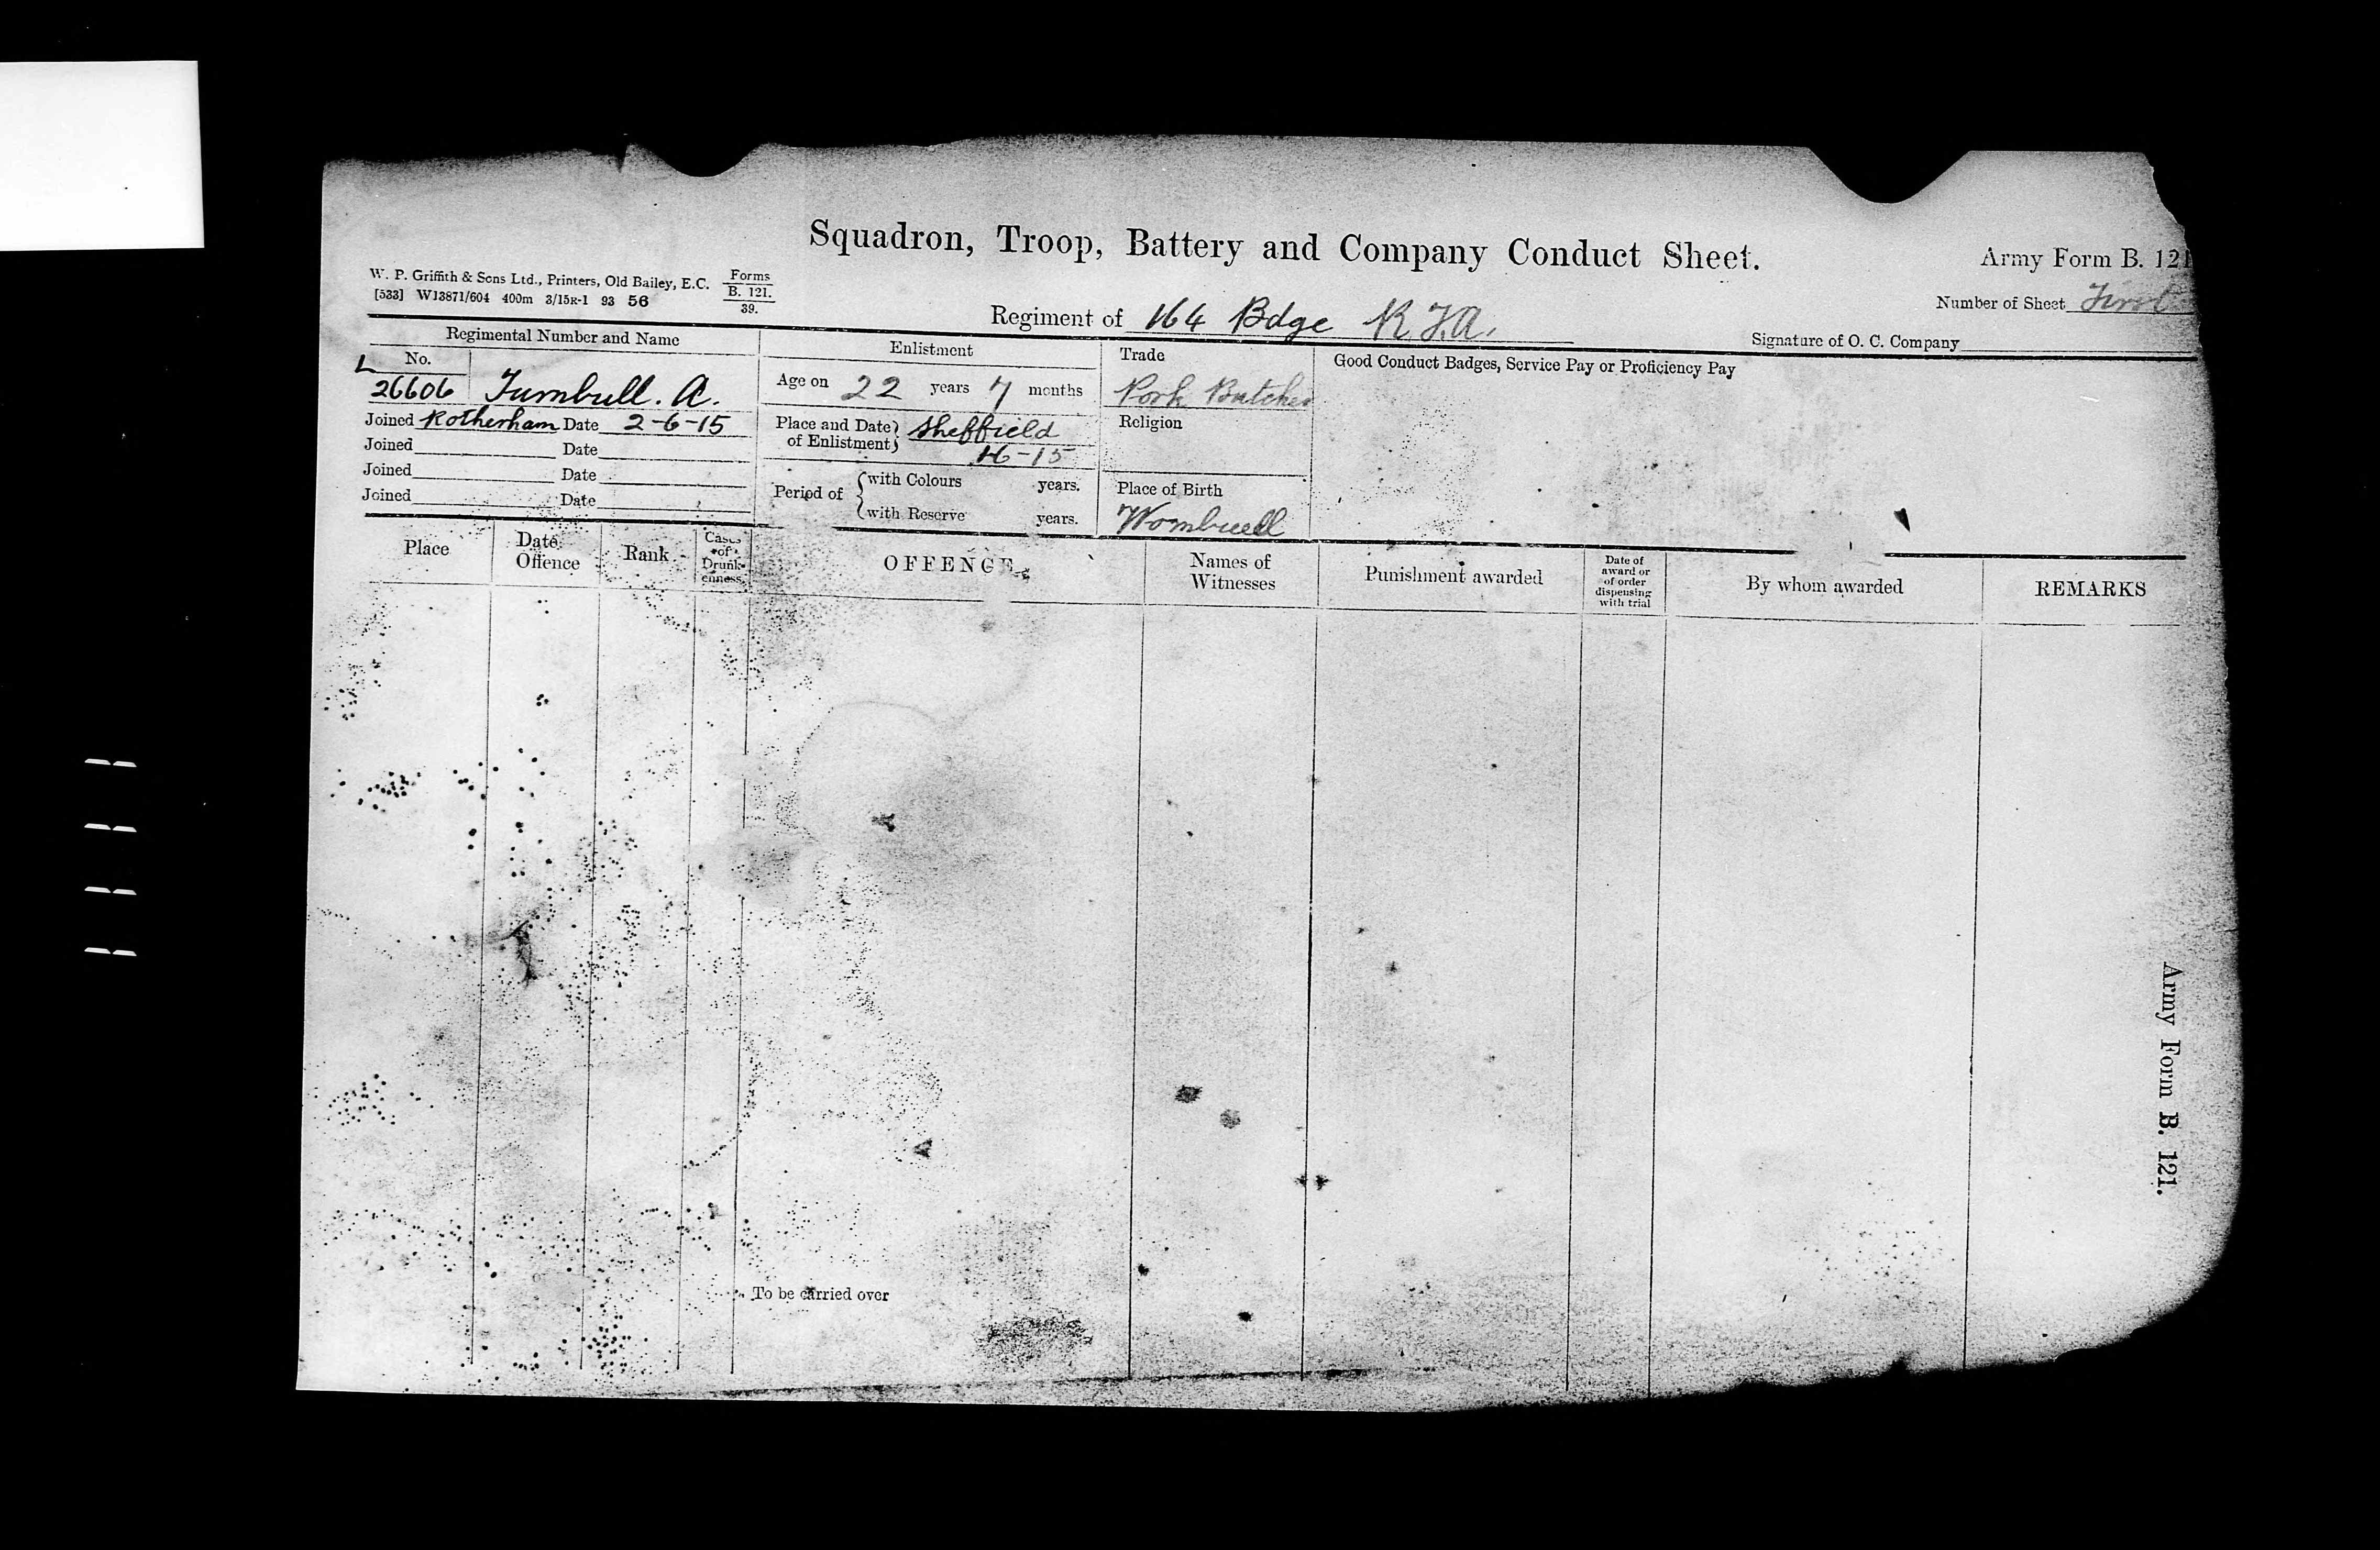 Squadron, Troop, Battery and Company Conduct Sheet.
Army Form B. 121
W. P. Griffith & Sons Ltd., Printers, Old Bailey, E.C. Forms B. 121. 39.
[533] W13871/604 400m 3/15R-1 93 56
Number of Sheet First
Regiment of 164 Bdge R.F.A.
Signature of O. C. Company
Regimental Number and Name
Enlistment
Trade
Good Conduct Badges, Service Pay or Proficiency Pay
No.
L
26606 Turnbull. A.
Age on 22 years 7 months
Pork Butcher
Joined Rotherham Date 2-6-15
Place and Date of Enlistment Sheffield
Religion
Joined Date
Joined Date
Joined Date
Period of with Colours years.
with Reserve years.
Place of Birth
Wombwell
Place
Date Offence
Rank
Cases of Drunkenness
OFFENCE
Names of Witnesses
Punishment awarded
Date of award or of order dispensing with trial
By whom awarded
REMARKS
Army Form B. 121.
To be carried over